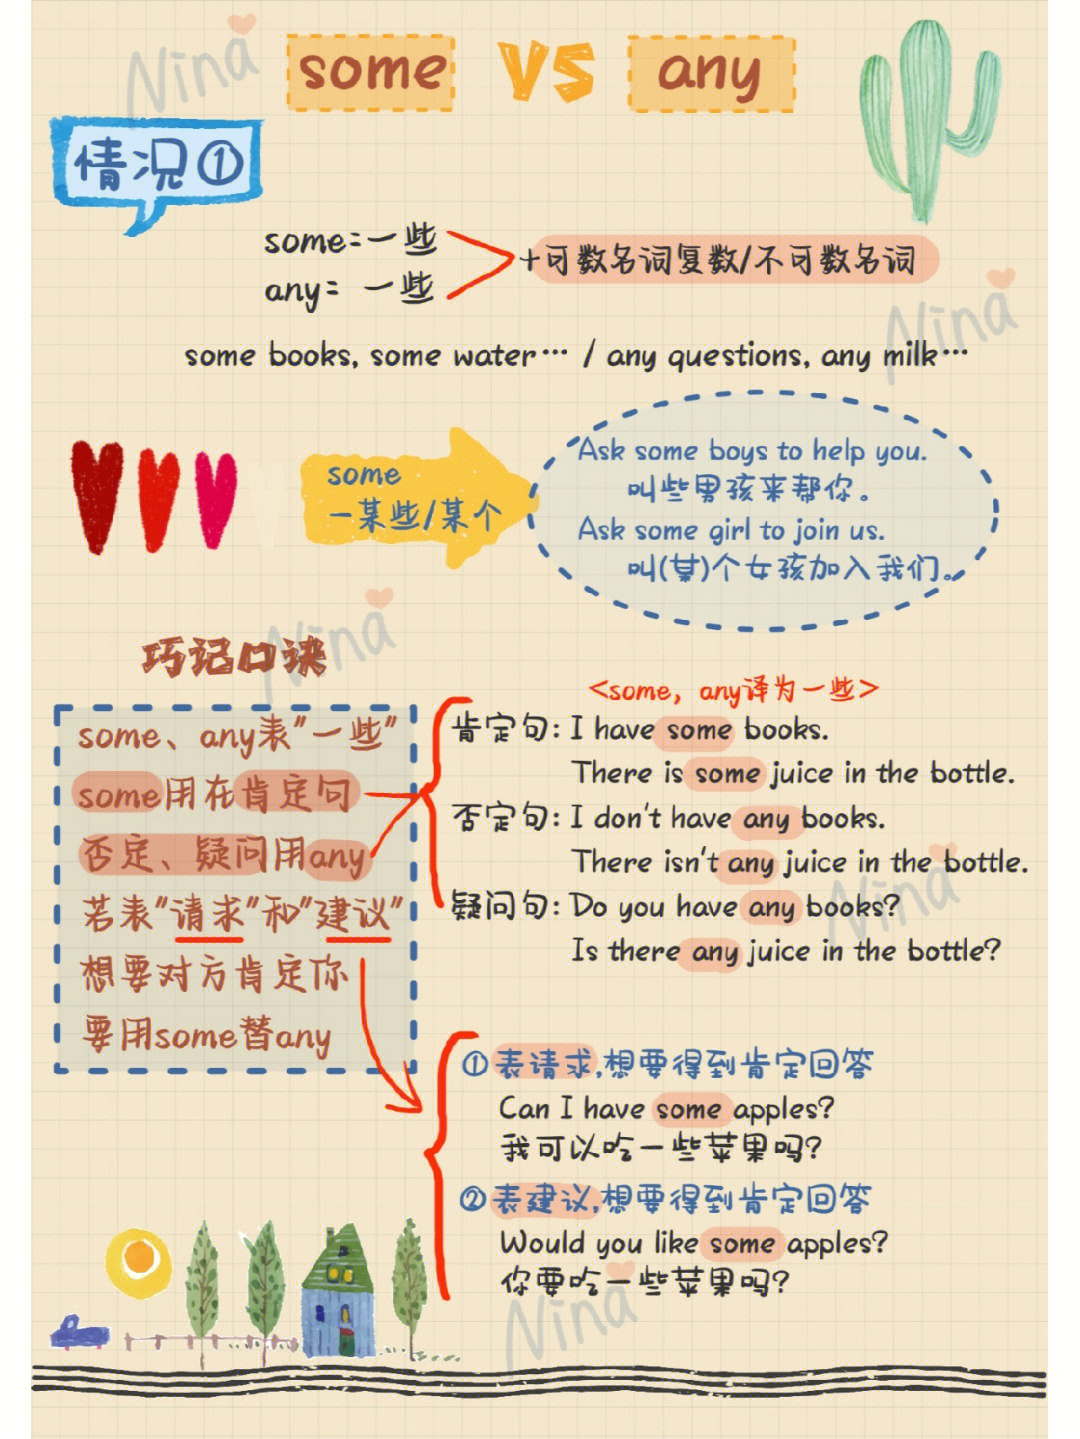 some VS any
情况①
some=一些
any= 一些
+可数名词复数/不可数名词
some books, some water… / any questions, any milk…
some
-某些/某个
Ask some boys to help you.
叫些男孩来帮你。
Ask some girl to join us.
叫(某)个女孩加入我们。
巧记口诀
some、any表"一些"
some用在肯定句
否定、疑问用any
若表"请求"和"建议"
想要对方肯定你
要用some替any
<some, any译为一些>
肯定句: I have some books.
There is some juice in the bottle.
否定句: I don't have any books.
There isn't any juice in the bottle.
疑问句: Do you have any books?
Is there any juice in the bottle?
①表请求,想要得到肯定回答
Can I have some apples?
我可以吃一些苹果吗?
②表建议,想要得到肯定回答
Would you like some apples?
你要吃一些苹果吗?
Nina
Nina
Nina
Nina
Nina